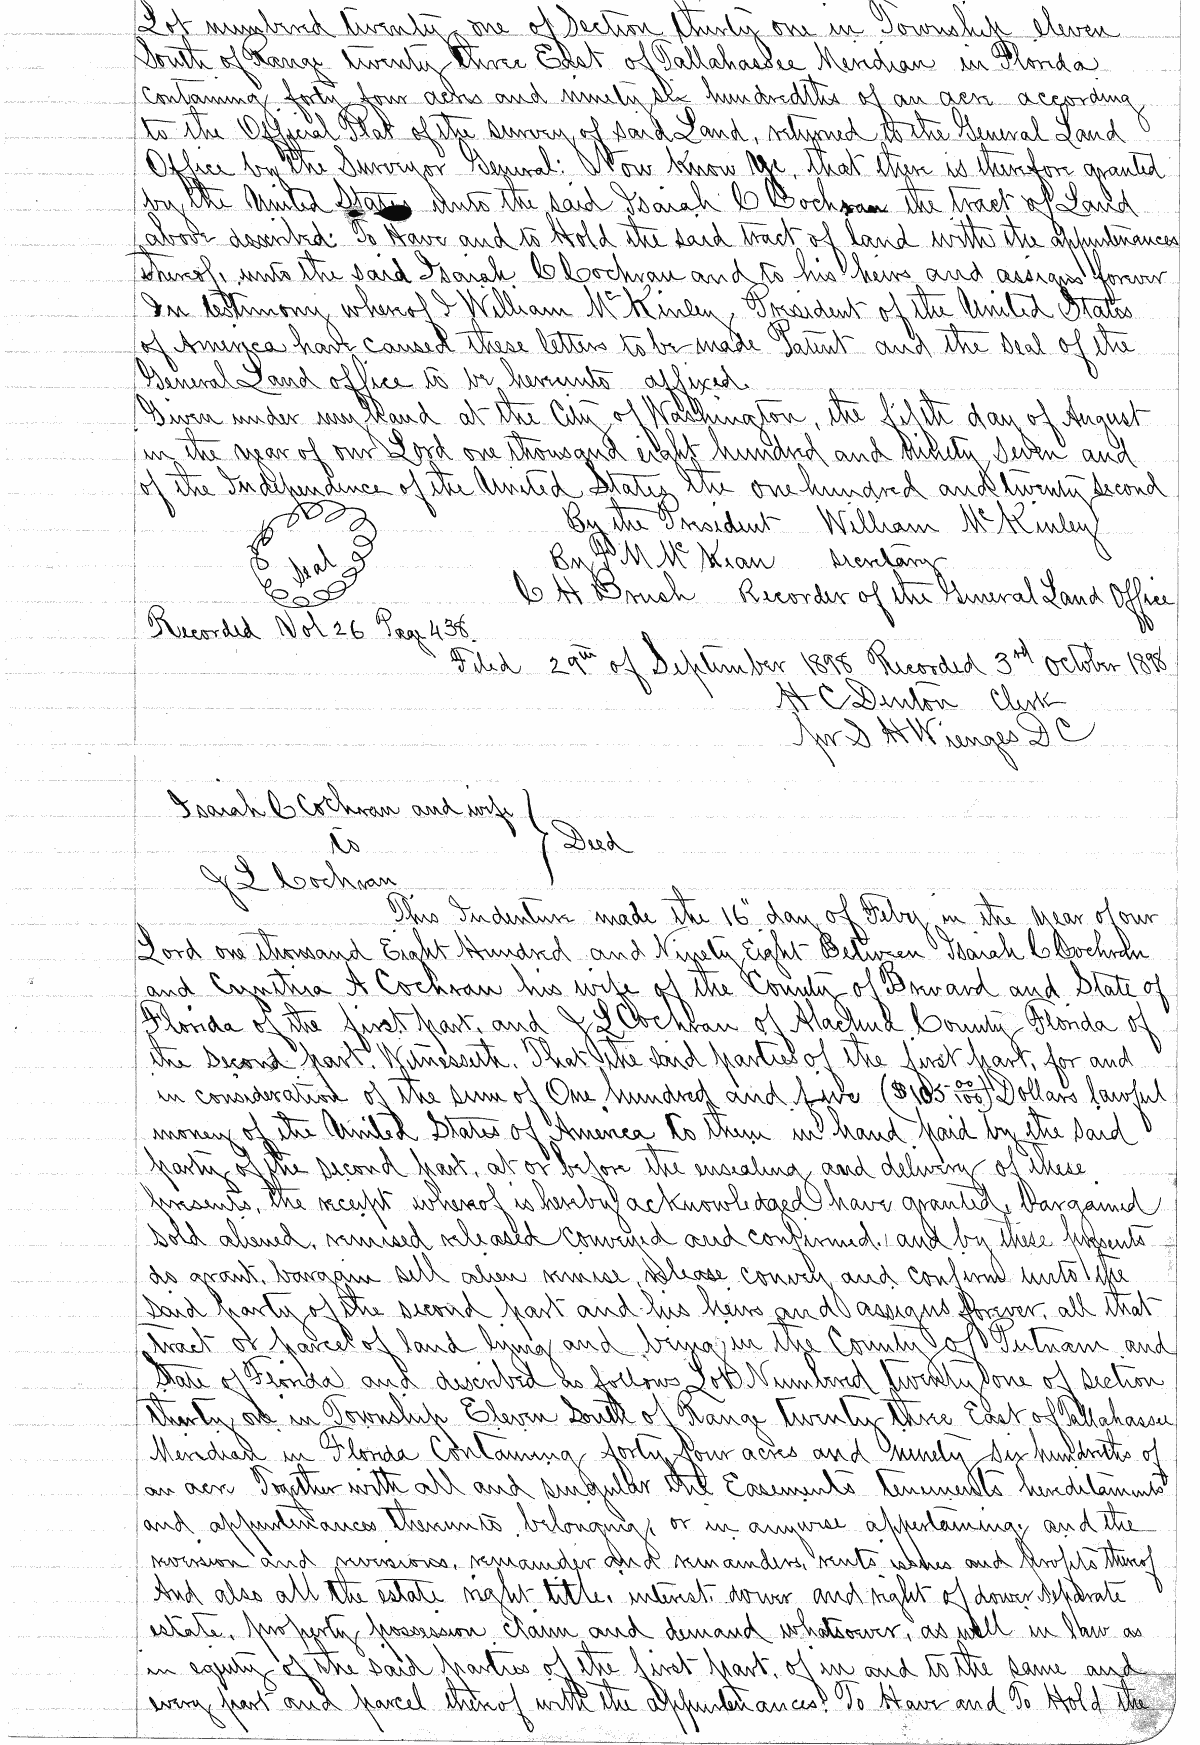 Lot numbered twenty one of Section thirty one in Township eleven
South of Range twenty three East of Tallahassee Meridian in Florida
containing forty four acres and ninety six hundredths of an acre according
to the Official Plat of the survey of said Land, returned to the General Land
Office by the Surveyor General: Now know Ye, that there is therefore granted
by the United States unto the said Isaiah C Cochran the tract of Land
above described: To Have and to Hold the said tract of land with the appurtenances
thereof, unto the said Isaiah C Cochran and to his heirs and assigns forever
In testimony whereof I William McKinley, President of the United States
of America have caused these letters to be made Patent and the seal of the
General Land office to be hereunto affixed.
Given under my hand at the City of Washington, the fifth day of August
in the year of our Lord one thousand eight hundred and Ninety Seven and
of the Independence of the United States the one hundred and twenty second
By the President William McKinley
Seal
By M McKean secretary
C H Brush Recorder of the General Land Office
Recorded Vol 26 Page 438.
Filed 29th of September 1898 Recorded 3rd October 1898
H C Denton Clerk
pr S H Wienges D C
Isaiah C Cochran and wife
to } Deed
J L Cochran
This Indenture made the 16" day of Feby in the year of our
Lord one thousand Eight Hundred and Ninety Eight Between Isaiah C Cochran
and Cynthia A Cochran his wife of the County of Brevard and State of
Florida of the first part, and J L Cochran of Alachua County Florida of
the second part. Witnesseth. That the said parties of the first part, for and
in consideration of the sum of One hundred and five ($105 00/100) Dollars lawful
money of the United States of America to them in hand paid by the said
party of the second part, at or before the ensealing and delivery of these
presents, the receipt whereof is hereby acknowledged have granted, bargained
sold aliened, remised released conveyed and confirmed, and by these presents
do grant, bargain sell alien remise, release convey and confirm unto the
said party of the second part and his heirs and assigns forever, all that
tract or parcel of land lying and being in the County of Putnam and
State of Florida and described as follows Lot Numbered twenty one of section
thirty one in Township Eleven South of Range twenty three East of Tallahassee
Meridian in Florida Containing forty four acres and ninety six hundredths of
an acre Together with all and singular the Easements tenements hereditaments
and appurtenances thereunto belonging, or in anywise appertaining, and the
reversion and reversions, remainder and remainders, rents issues and profits thereof
And also all the estate right title, interest, dower and right of dower separate
estate, property possession claim and demand whatsoever, as well in law as
in equity of the said parties of the first part, of in and to the same and
every part and parcel thereof with the appurtenances. To Have and To Hold the